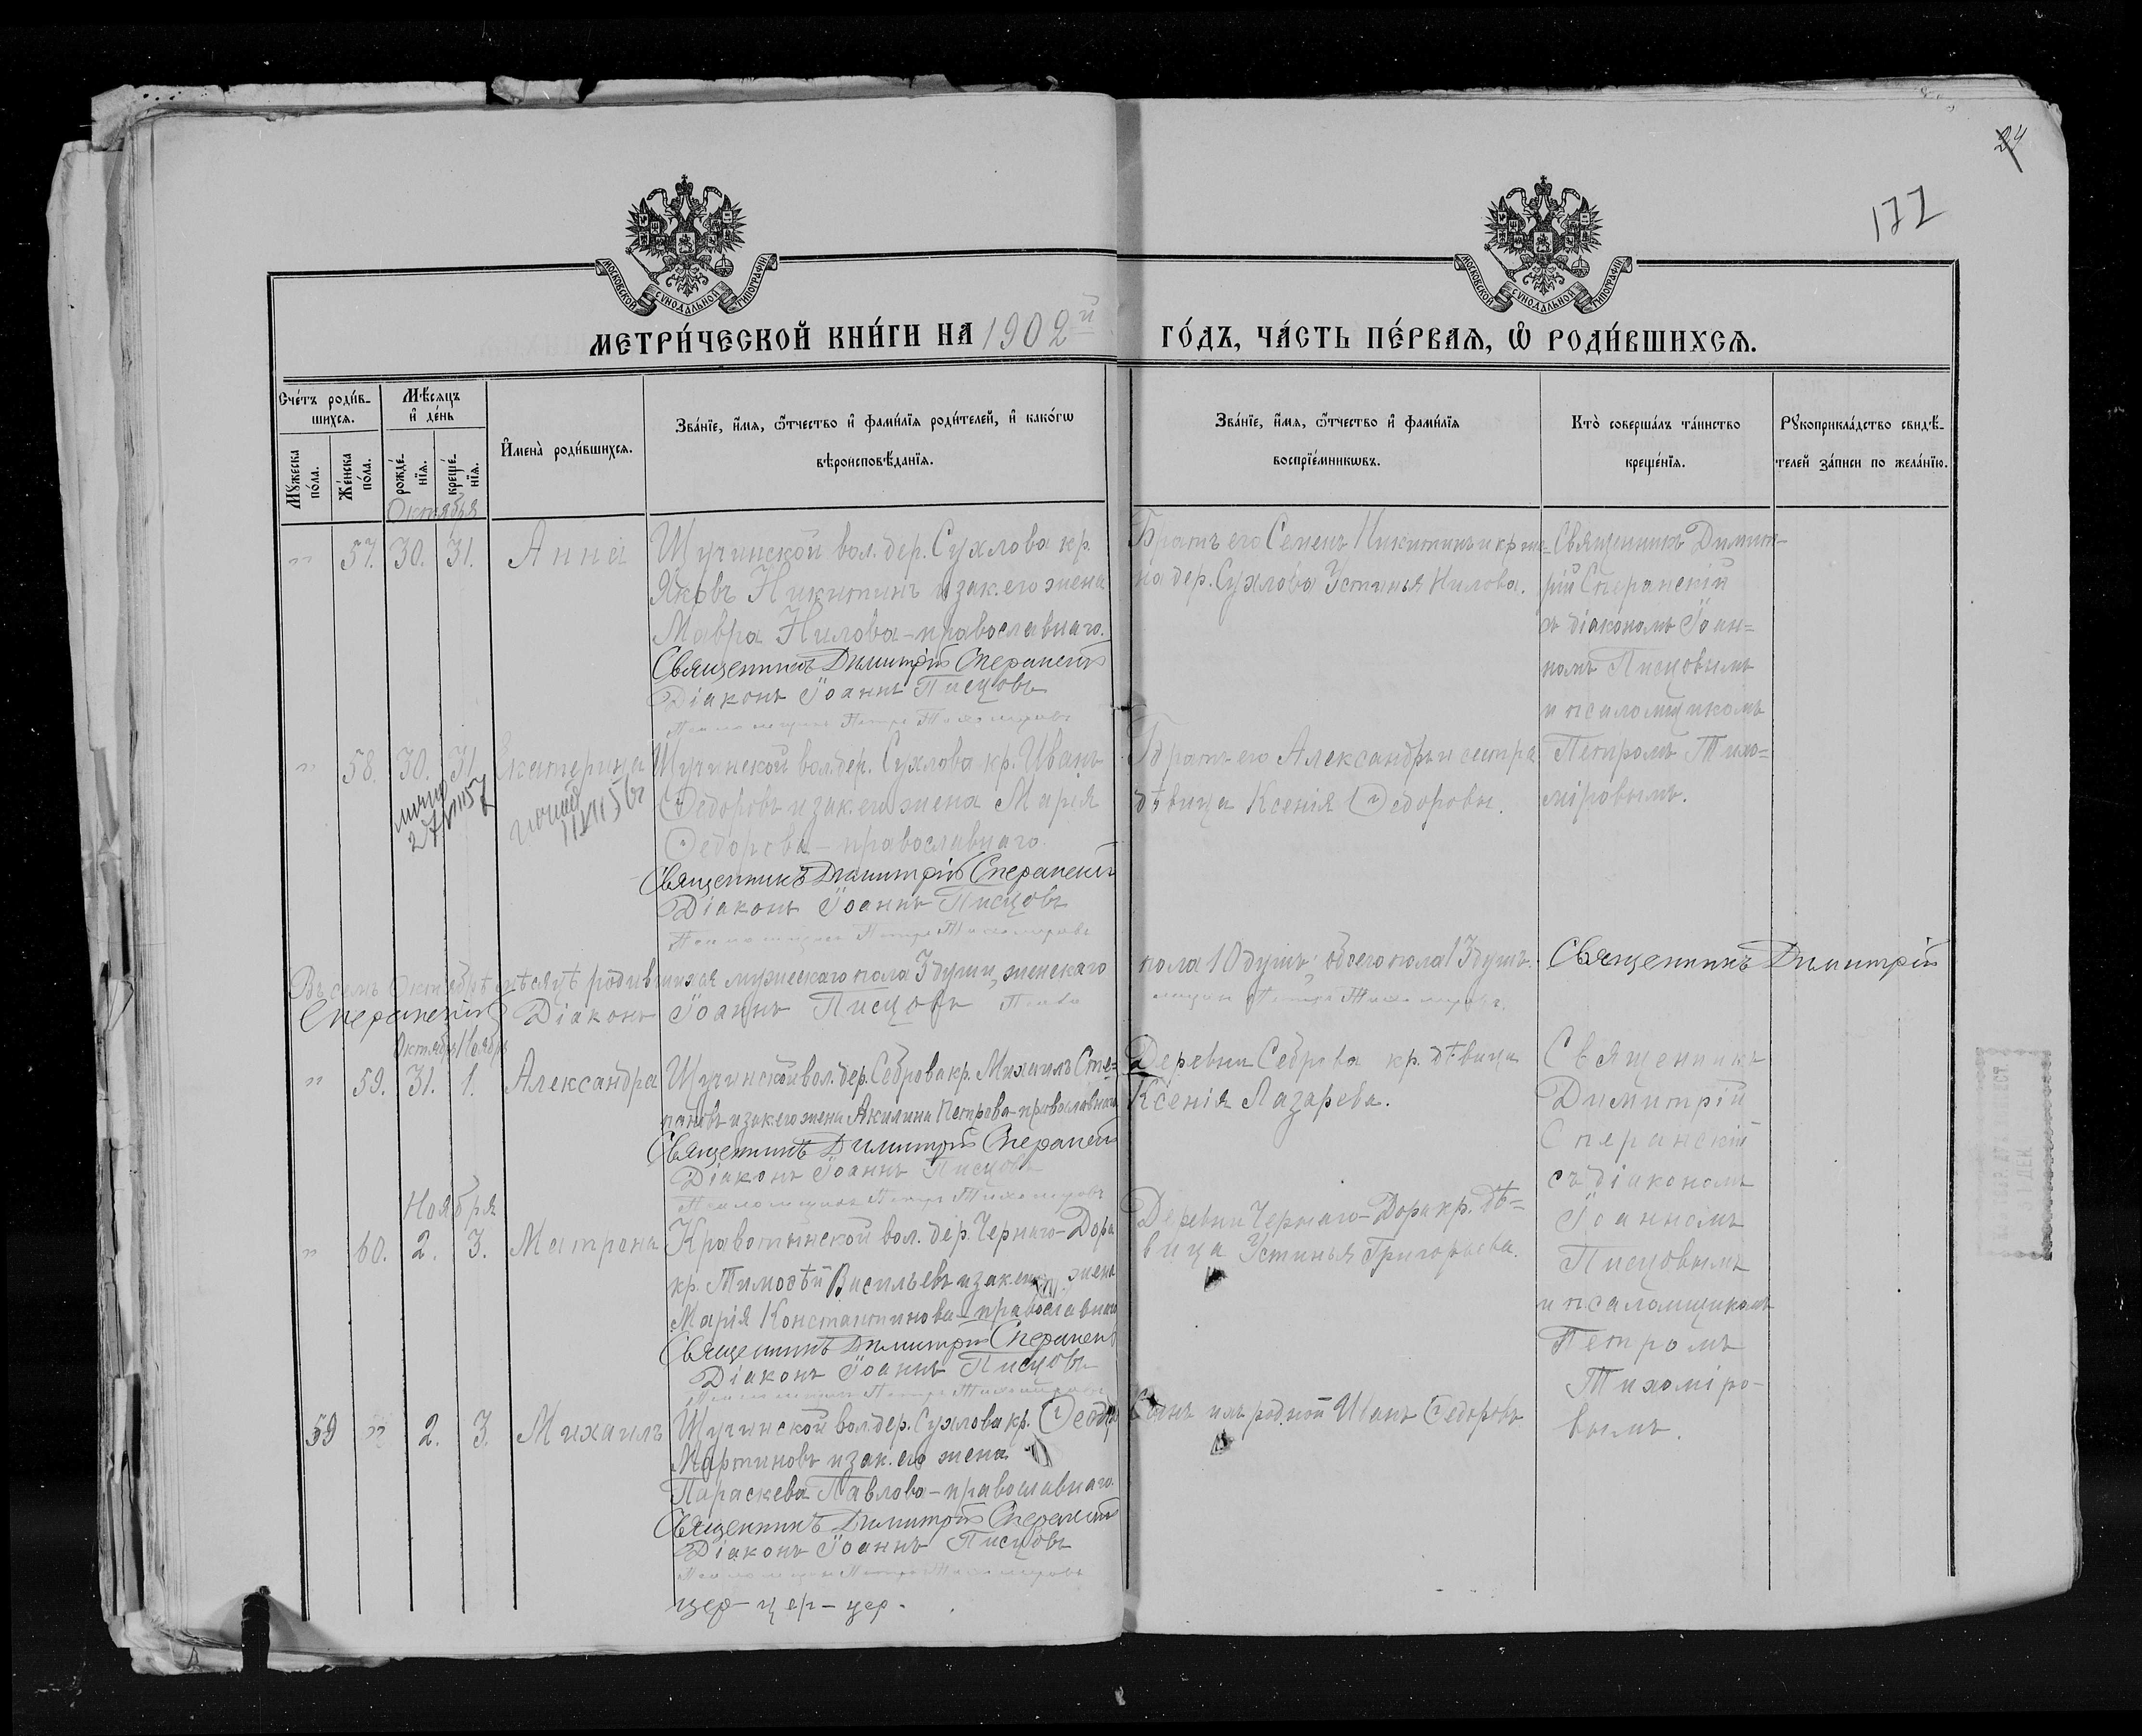 24
177
МОСКОВСКОЙ СѴНОДАЛЬНОЙ ТИПОГРАФІИ
МОСКОВСКОЙ СѴНОДАЛЬНОЙ ТИПОГРАФІИ
МЕТРИ́ЧЕСКОЙ КНИ́ГИ НА 1902й ГО́ДЪ, ЧА́СТЬ ПЕ́РВАѦ, Ѡ҆ РОДИ́ВШИХСѦ.
Сче́тъ роди́в-
шихсѧ.
Мꙋ́жеска по́ла.
Же́нска по́ла.
Мѣ́сѧцъ и҆ де́нь
рожде́-нїѧ.
креще́-нїѧ.
И҆мена̀ роди́вшихсѧ.
Зва́нїе, и҆́мѧ, ѻ҆́тчество и҆ фами́лїѧ роди́телей, и҆ како́гѡ
вѣроисповѣ́данїѧ.
Зва́нїе, и҆́мѧ, ѻ҆́тчество и҆ фами́лїѧ
воспрїе́мникѡвъ.
Кто̀ соверша́лъ та́инство
креще́нїѧ.
Рꙋкоприкла́дство свидѣ́-
телей за́писи по жела́нїю.
Октября
" 57. 30. 31. Анна
Щучинской вол. дер. Сухлова кр.
Яковъ Никитинъ и зак. его жена
Мавра Нилова - православнаго.
Священникъ Димитрій Сперанскій
Діаконъ Іоаннъ Писцовъ
Псаломщикъ Петръ Тихомировъ
Братъ его Семенъ Никитинъ и кр-
на дер. Сухлова Устинья Нилова.
Священникъ Димит-
рій Сперанскій
съ діакономъ Іоан-
номъ Писцовымъ
и псаломщикомъ
Петромъ Тихо-
міровымъ.
" 58. 30. 31. Екатерина
Щучинской вол. дер. Сухлова кр. Иванъ
Ѳедоровъ и зак. его жена Марія
Ѳедорова - православнаго.
Священникъ Димитрій Сперанскій
Діаконъ Іоаннъ Писцовъ
Псаломщикъ Петръ Тихомировъ
Братъ его Александръ и сестра
дѣвица Ксенія Ѳедоровы.
Въ семъ Октябрѣ мѣсяцѣ родившихся мужескаго пола 3 души, женскаго пола 10 душъ, обоего пола 13 душъ. Священникъ Димитрій
Сперанскій Діаконъ Іоаннъ Писцовъ Псаломщикъ Петръ Тихомировъ.
Октябрь Ноябрь
" 59. 31. 1. Александра
Щучинской вол. дер. Седрова кр. Михаилъ Сте-
пановъ и зак. его жена Акилина Петрова - православнаго
Священникъ Димитрій Сперанскій
Діаконъ Іоаннъ Писцовъ
Псаломщикъ Петръ Тихомировъ
Деревни Седрова кр. дѣвица
Ксенія Лазарева.
Священникъ
Димитрій
Сперанскій
съ діакономъ
Іоанномъ
Писцовымъ
и псаломщикомъ
Петромъ
Тихоміро-
вымъ.
Ноября
" 60. 2. 3. Матрона
Кравотынской вол. дер. Чернаго-Дора
кр. Тимоѳей Васильевъ и зак. его жена
Марія Константинова - православнаго
Священникъ Димитрій Сперанскій
Діаконъ Іоаннъ Писцовъ
Псаломщикъ Петръ Тихомировъ
Деревни Чернаго-Дора кр. дѣ-
вица Устинья Григорьева.
59 " 2. 3. Михаилъ
Щучинской вол. дер. Сухлова кр. Ѳедоръ
Мартиновъ и зак. его жена
Параскева Павлова - православнаго.
Священникъ Димитрій Сперанскій
Діаконъ Іоаннъ Писцовъ
Псаломщикъ Петръ Тихомировъ
Сынъ ихъ родной Иванъ Ѳедоровъ